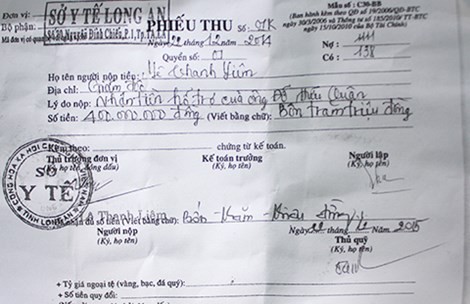 SỞ Y TẾ LONG AN
Bộ phận:
Mã đơn vị
Số 70, Nguyễn Đình Chiểu, P.1, Tp.TA-LA
PHIẾU THU
Số 01K
Ngày 22 tháng 12 năm 2014
Quyển số: 01
Mẫu số : C30-BB
(Ban hành kèm theo QĐ số 19/2006/QĐ-BTC
ngày 30/3/2006 và Thông tư số 185/2010/TT-BTC
ngày 15/10/2010 của Bộ Tài Chính)
Nợ : 1111
Có : 138
Họ tên người nộp tiền: Thanh Liêm
Địa chỉ: Giám đốc
Lý do nộp: Nhận tiền hỗ trợ của ông Đỗ Quân
Số tiền: 400.000.000 đồng (Viết bằng chữ): Bốn trăm triệu đồng
Kèm theo: chứng từ kế toán.
Thủ trưởng đơn vị
Kế toán trưởng
Người lập
(Ký, họ tên, đóng dấu)
(Ký, họ tên)
(Ký, họ tên)
CỘNG HÒA XÃ HỘI
SỞ
Y TẾ
TỈNH LONG AN
Thanh Liêm
nhận đủ số tiền (Viết bằng chữ): Bốn trăm triệu đồng
Ngày 22 tháng năm 2015
Người nộp
Thủ quỹ
(Ký, họ tên)
(Ký, họ tên)
+ Tỷ giá ngoại tệ (vàng, bạc, đá quý):
+ Số tiền quy đổi: